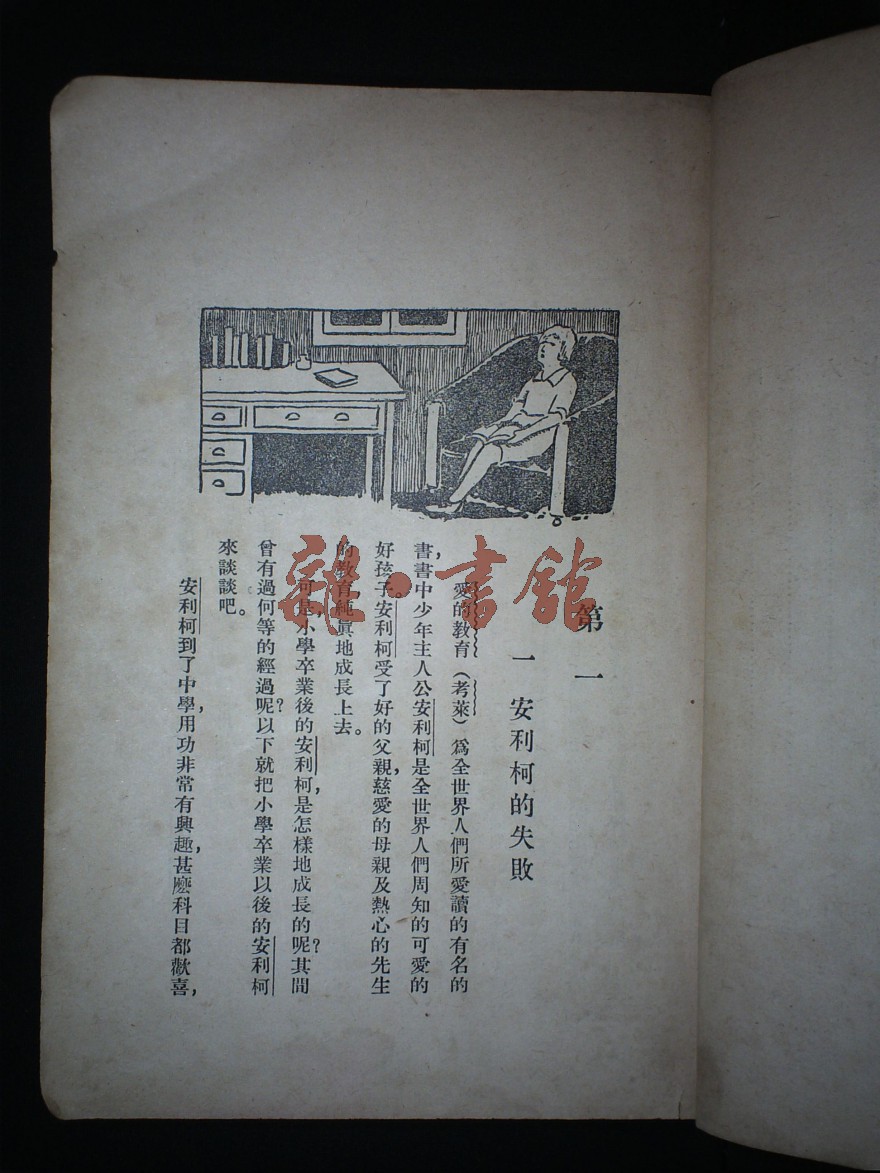 第一
一 安利柯的失敗
愛的教育（考萊）爲全世界人們所愛讀的有名的
書，書中少年主人公安利柯是全世界人們周知的可愛的
好孩子。安利柯受了好的父親，慈愛的母親及熱心的先生
的教育，純眞地成長上去。
可是，小學卒業後的安利柯，是怎樣地成長的呢？其間
曾有過何等的經過呢？以下就把小學卒業以後的安利柯
來談談吧。
安利柯到了中學，用功非常有興趣，甚麽科目都歡喜，
雜·書館